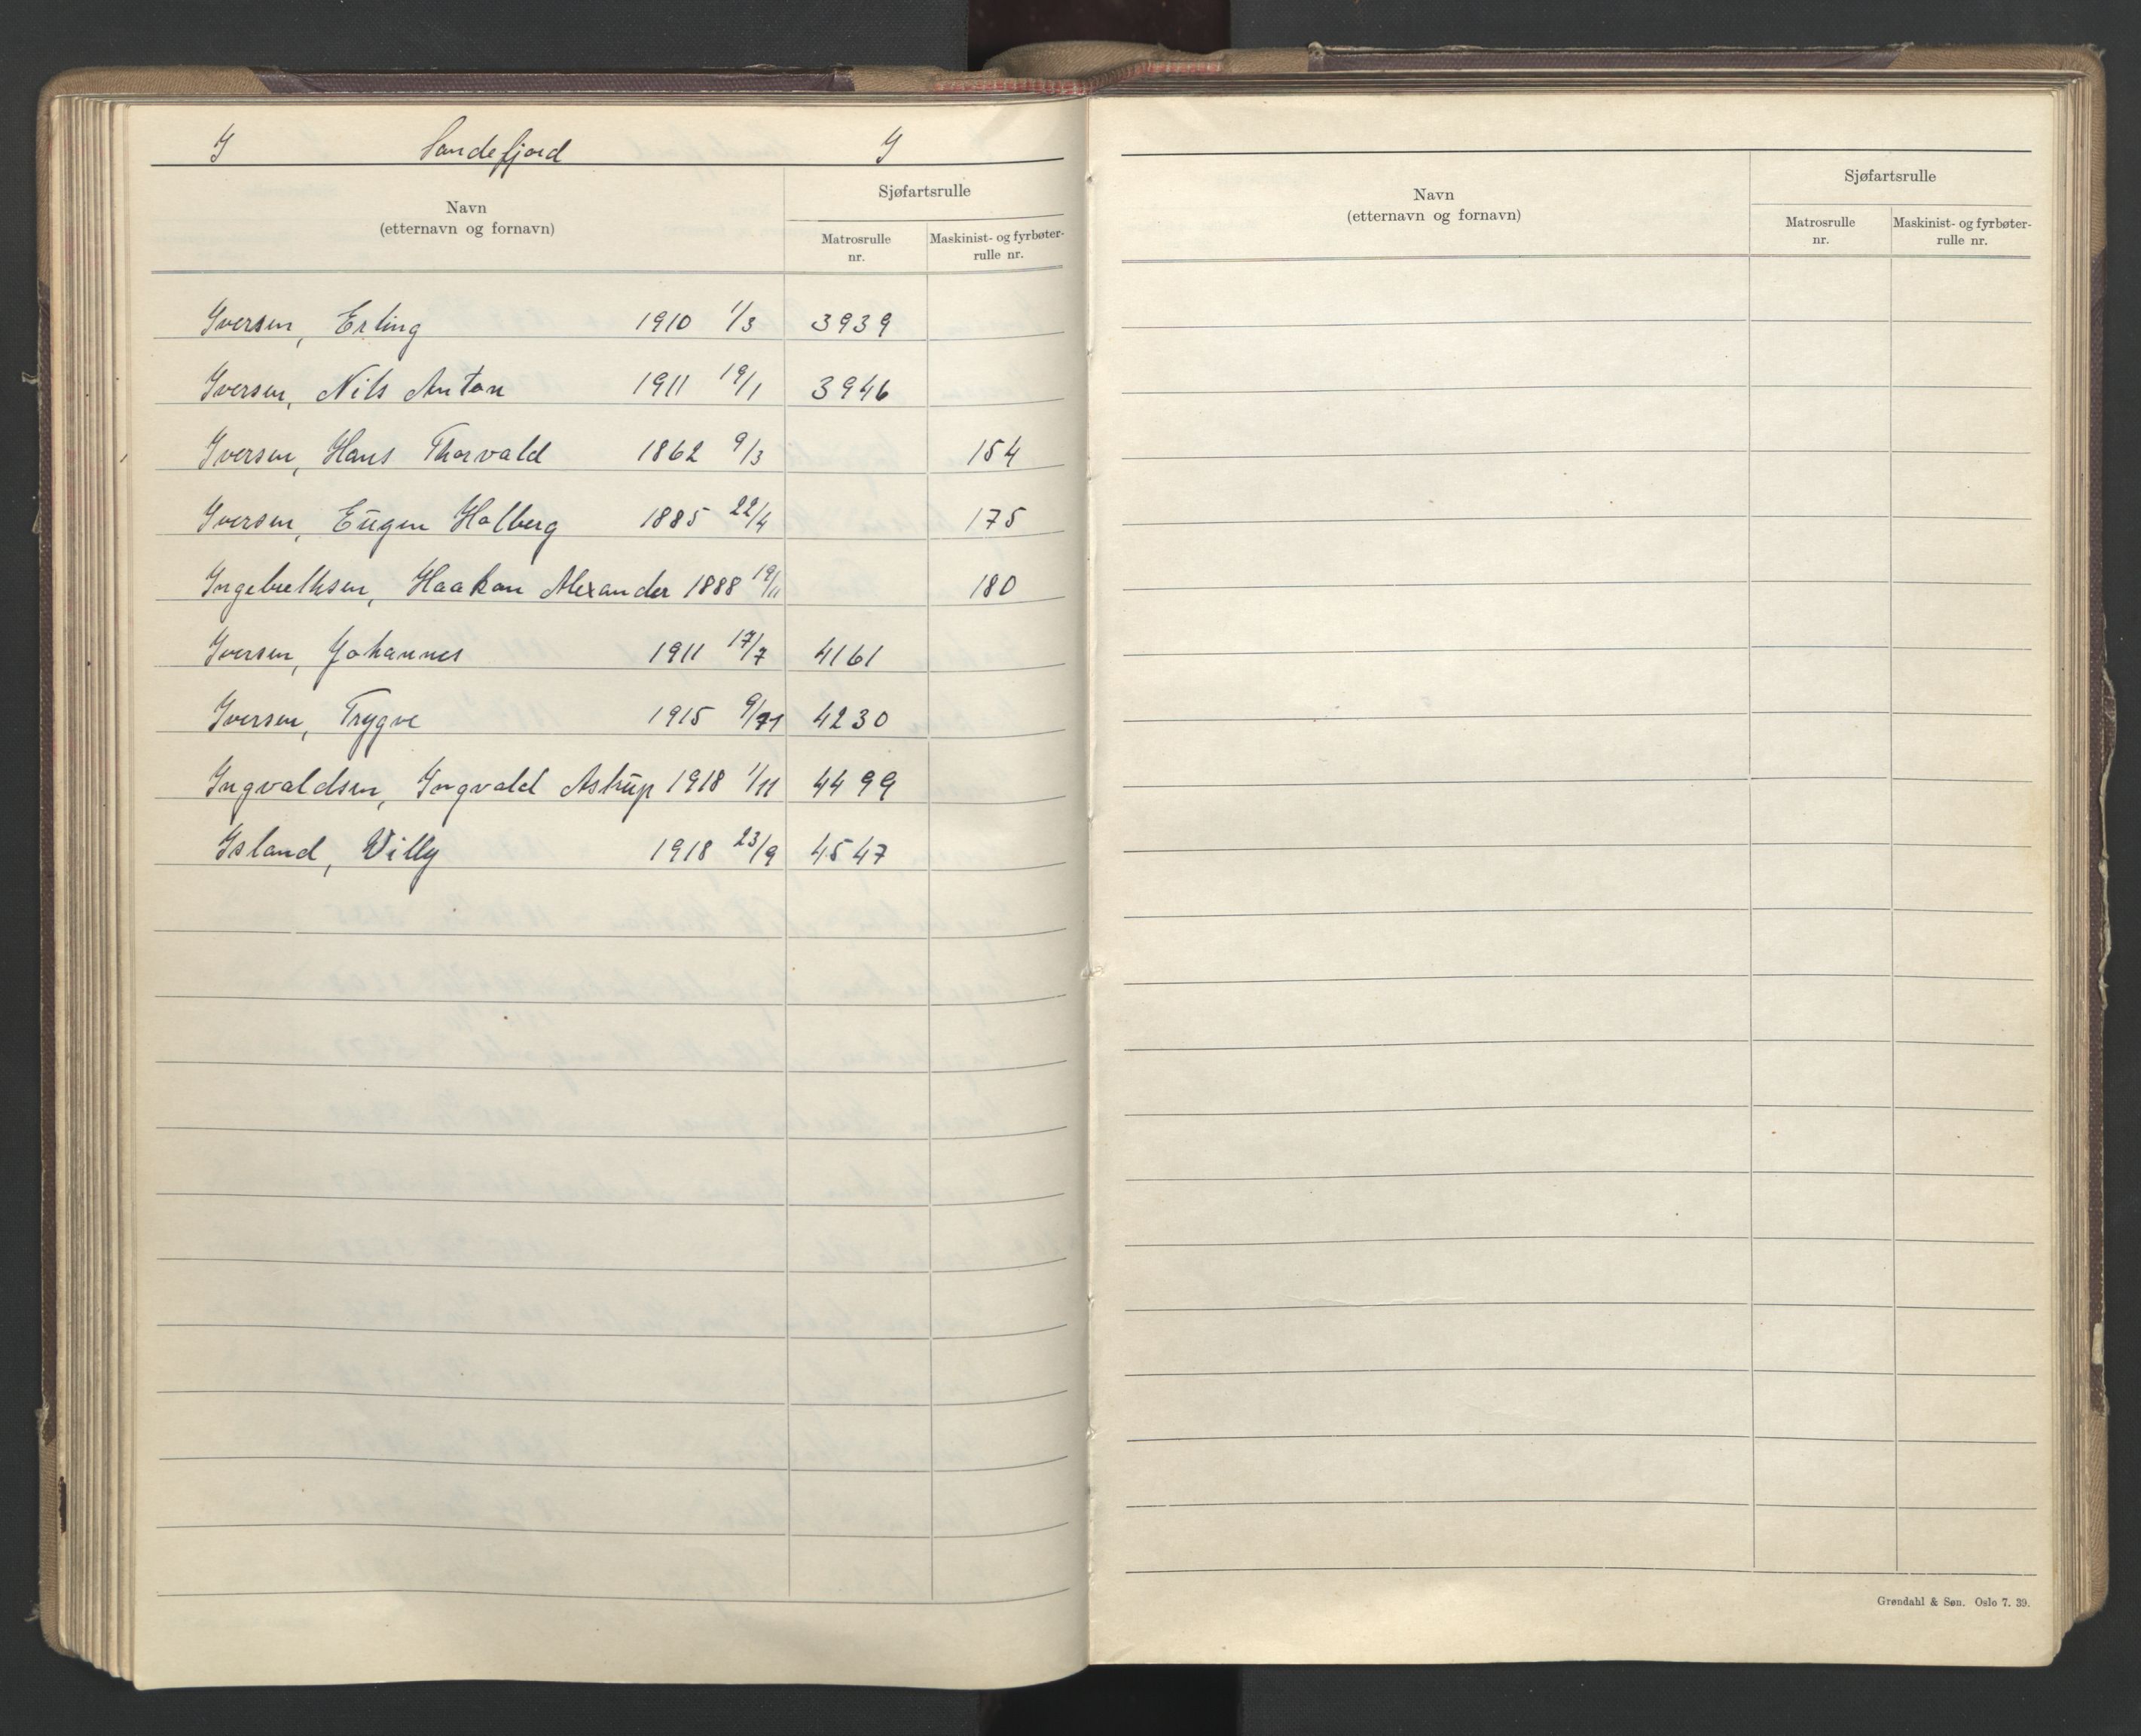 I Sandefjord I
Navn
(etternavn og fornavn)
Sjøfartsrulle
Matrosrulle
nr.
Maskinist- og fyrbøter-
rulle nr.
Iversen, Erling 1910 1/3 3939
Iversen, Nils Anton 1911 19/1 3946
Iversen, Hans Thorvald 1862 9/3 154
Iversen, Eugen Holberg 1885 22/4 175
Ingebrethsen, Haakon Alexander 1888 19/11 180
Iversen, Johannes 1911 17/7 4161
Iversen, Trygve 1915 4230
Ingvaldsen, Ingvald Astrup 1918 1/11 4499
Island, Willy 1918 23/9 4547
Navn
(etternavn og fornavn)
Sjøfartsrulle
Matrosrulle
nr.
Maskinist- og fyrbøter-
rulle nr.
Grøndahl & Søn. Oslo 7. 39.